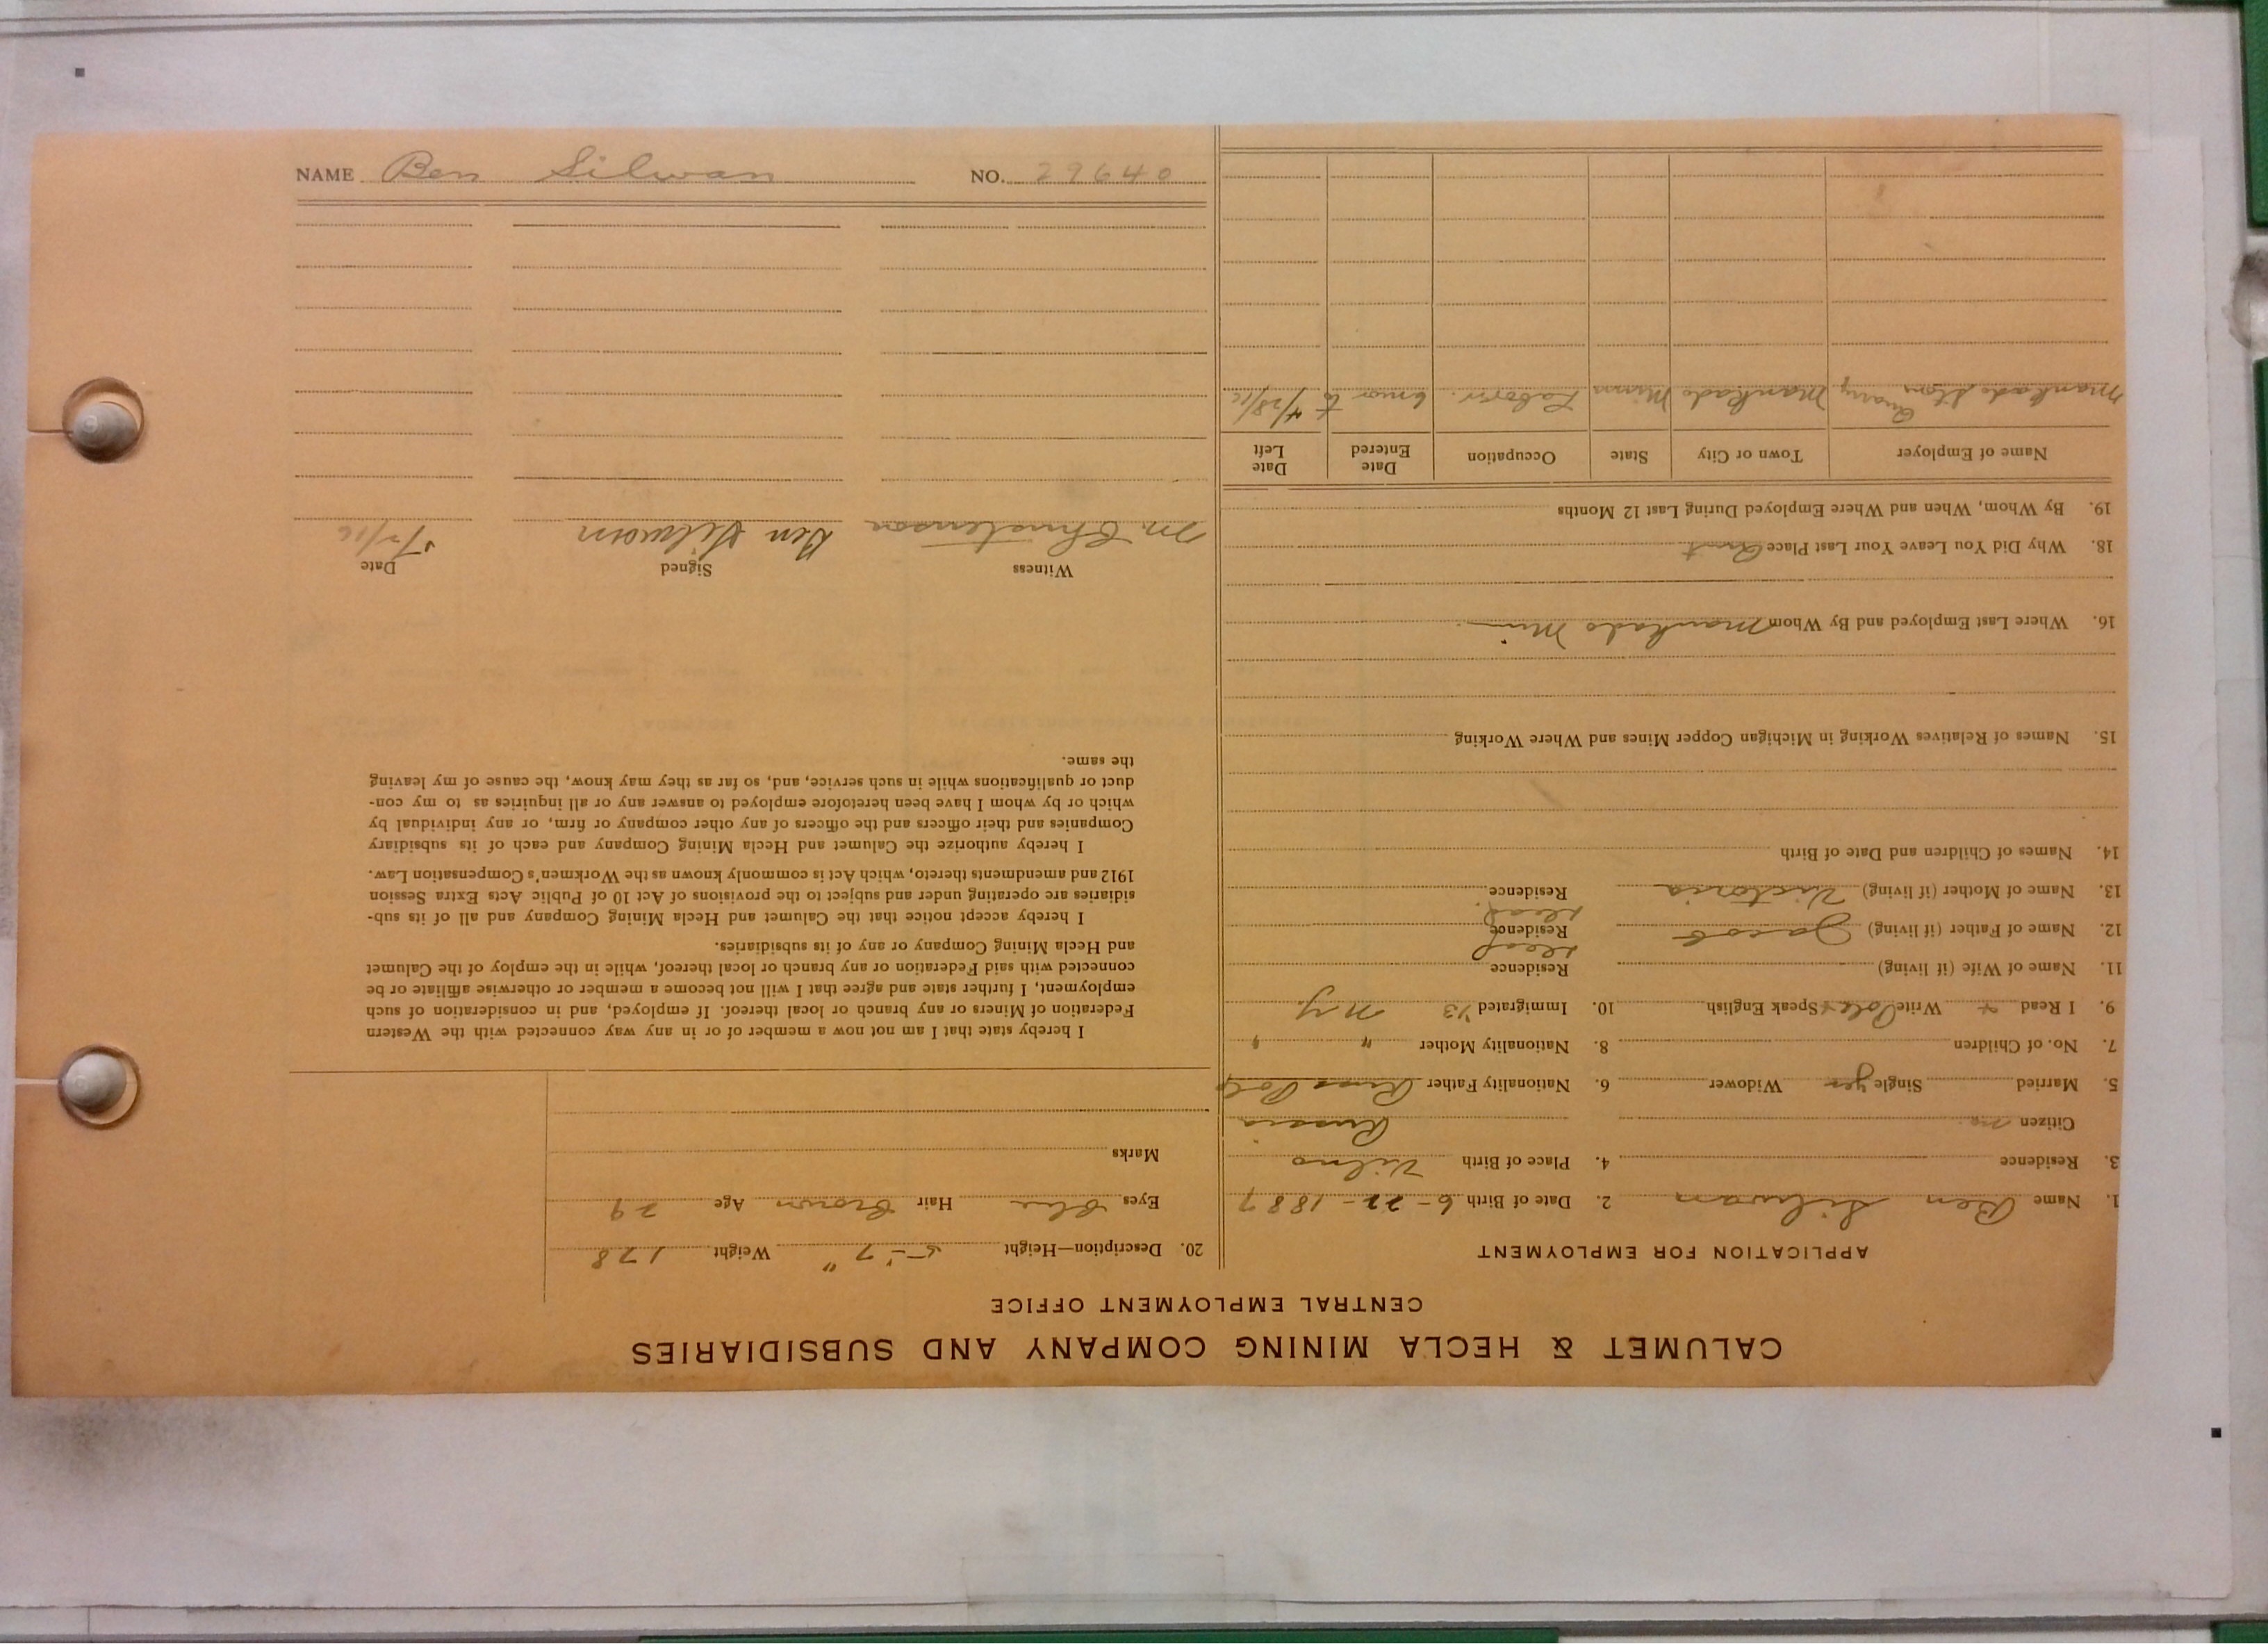 CALUMET & HECLA MINING COMPANY AND SUBSIDIARIES
CENTRAL EMPLOYMENT OFFICE
APPLICATION FOR EMPLOYMENT
1. Name Ben Silwan 2. Date of Birth 6-22-1887
3. Residence 4. Place of Birth Vilno
Citizen no. Russia
5. Married Single yes Widower 6. Nationality Father Russ Pole
7. No. of Children 8. Nationality Mother " "
9. I Read + Write Pole + Speak English 10. Immigrated '13 N.Y.
11. Name of Wife (if living) Residence
12. Name of Father (if living) Jacob Residence Dead
13. Name of Mother (if living) Victoria Residence Dead
14. Names of Children and Date of Birth
15. Names of Relatives Working in Michigan Copper Mines and Where Working
16. Where Last Employed and By Whom Mankado Min
18. Why Did You Leave Your Last Place
19. By Whom, When and Where Employed During Last 12 Months
Name of Employer Town or City State Occupation Date Entered Date Left
Mankado Ston Quarry Mankado Minn Laborer. 6 mor to 4/28/16
20. Description—Height 5'-7" Weight 178
Eyes Blue Hair Brown Age 29
Marks
I hereby state that I am not now a member of or in any way connected with the Western
Federation of Miners or any branch or local thereof. If employed, and in consideration of such
employment, I further state and agree that I will not become a member or otherwise affiliate or be
connected with said Federation or any branch or local thereof, while in the employ of the Calumet
and Hecla Mining Company or any of its subsidiaries.
I hereby accept notice that the Calumet and Hecla Mining Company and all of its sub-
sidiaries are operating under and subject to the provisions of Act 10 of Public Acts Extra Session
1912 and amendments thereto, which Act is commonly known as the Workmen's Compensation Law.
I hereby authorize the Calumet and Hecla Mining Company and each of its subsidiary
Companies and their officers and the officers of any other company or firm, or any individual by
which or by whom I have been heretofore employed to answer any or all inquiries as to my con-
duct or qualifications while in such service, and, so far as they may know, the cause of my leaving
the same.
Witness Signed Date
M. Christenson Ben Silwan
NAME Ben Silwan NO. 29640